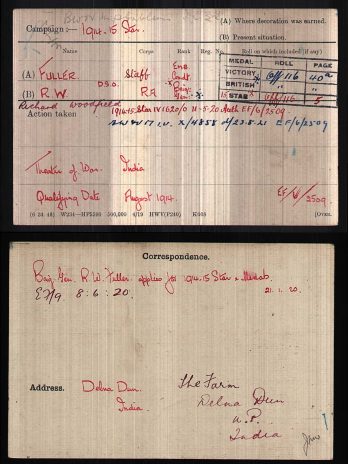 (A) Where decoration was earned.
Campaign :— 1914.15 Star.
(B) Present situation.
Name Corps Rank Reg. No. Roll on which included (if any)
MEDAL ROLL PAGE
(A) FULLER Staff VICTORY Off 116 40a
(B) R.W. D.S.O. R.A. Brig. Gen. BRITISH
Richard Woodfield 15 STAR Off/116 5
Action taken 1914.15 Star IV 1620/0 11.5.20 Auth EF/6/2509
I.V. X/4858 d/23.8.21 EF/6/2509
Theatre of War. India
Qualifying Date August 1914. EF/6/2509
(6 33 46) W234—HP5590 500,000 4/19 HWV(P240) K608 [Over.
Correspondence.
Brig. Gen. R. W. Fuller. applies for 1914.15 Star & Medals
8.6.20. 21.1.20.
Address. Dehra Dun. The Farm
India. Dehra Dun
U.P.
India